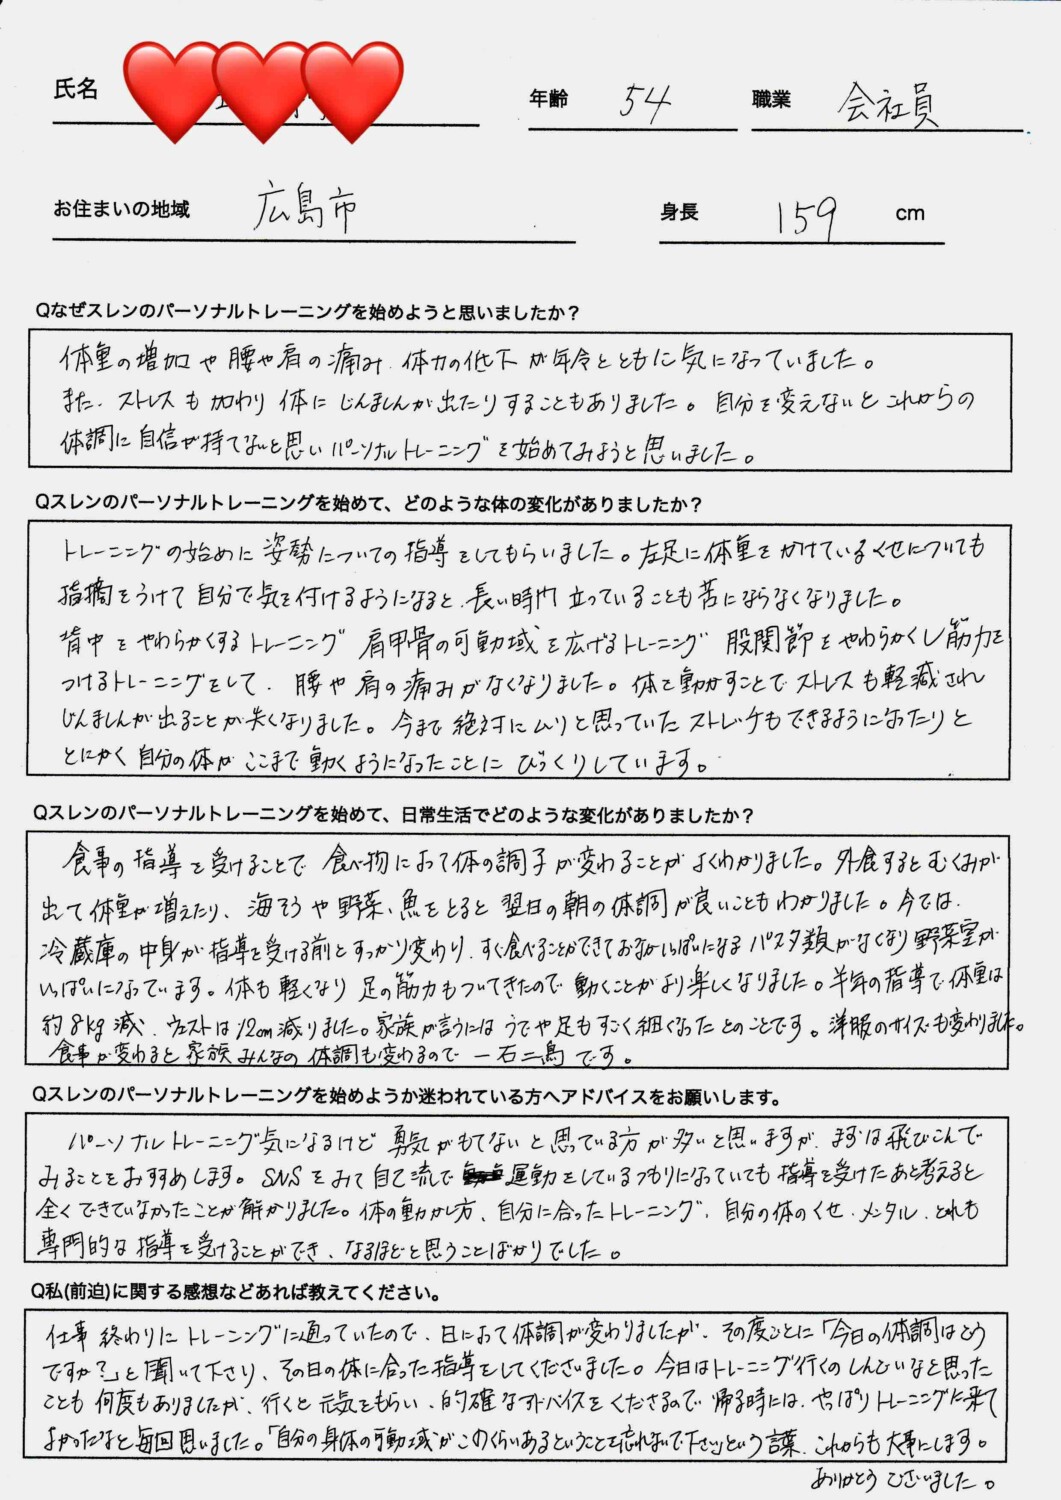 氏名
年齢 54 職業 会社員
お住まいの地域 広島市 身長 159 cm
Qなぜスレンのパーソナルトレーニングを始めようと思いましたか?
体重の増加や腰や肩の痛み、体力の低下が年令とともに気になっていました。
また、ストレスも加わり体にじんましんが出たりすることもありました。自分を変えないとこれからの
体調に自信が持てないと思いパーソナルトレーニングを始めてみようと思いました。
Qスレンのパーソナルトレーニングを始めて、どのような体の変化がありましたか?
トレーニングの始めに姿勢についての指導をしてもらいました。左足に体重をかけているくせについても
指摘をうけて自分で気を付けるようになると、長い時間立っていることも苦にならなくなりました。
背中をやわらかくするトレーニング 肩甲骨の可動域を広げるトレーニング 股関節をやわらかくし筋力を
つけるトレーニングをして、腰や肩の痛みがなくなりました。体を動かすことでストレスも軽減され
じんましんが出ることが失くなりました。今まで絶対にムリと思っていたストレッチもできるようになったりと
とにかく自分の体がここまで動くようになったことにびっくりしています。
Qスレンのパーソナルトレーニングを始めて、日常生活でどのような変化がありましたか?
食事の指導を受けることで食べ物によって体の調子が変わることがよくわかりました。外食するとむくみが
出て体重が増えたり、海そうや野菜、魚をとると翌日の朝の体調が良いこともわかりました。今では、
冷蔵庫の中身が指導を受ける前とすっかり変わり、すぐ食べることができておなかいっぱいになるパスタ類がなくなり野菜室が
いっぱいになっています。体も軽くなり足の筋力もついてきたので動くことがより楽しくなりました。半年の指導で体重は
約8kg減、ウエストは12cm減りました。家族が言うにはうでや足もすごく細くなったとのことです。洋服のサイズも変わりました。
食事が変わると家族みんなの体調も変わるので一石二鳥です。
Qスレンのパーソナルトレーニングを始めようか迷われている方へアドバイスをお願いします。
パーソナルトレーニング気になるけど勇気がもてないと思っている方が多いと思いますが、まずは飛びこんで
みることをおすすめします。SNSをみて自己流で運動をしているつもりになっていても指導を受けたあと考えると
全くできていなかったことが解かりました。体の動かし方、自分に合ったトレーニング、自分の体のくせ、メンタル、どれも
専門的な指導を受けることができ、なるほどと思うことばかりでした。
Q私(前迫)に関する感想などあれば教えてください。
仕事終わりにトレーニングに通っていたので、日によって体調が変わりましたが、その度ごとに「今日の体調はどう
ですか?」と聞いて下さり、その日の体に合った指導をしてくださいました。今日はトレーニング行くのしんどいなと思った
ことも何度もありましたが、行くと元気をもらい、的確なアドバイスをくださるので帰る時には、やっぱりトレーニングに来て
よかったなと毎回思いました。「自分の身体の可動域がこのくらいあるということを忘れないで下さい」という言葉、これからも大事にします。
ありがとうございました。